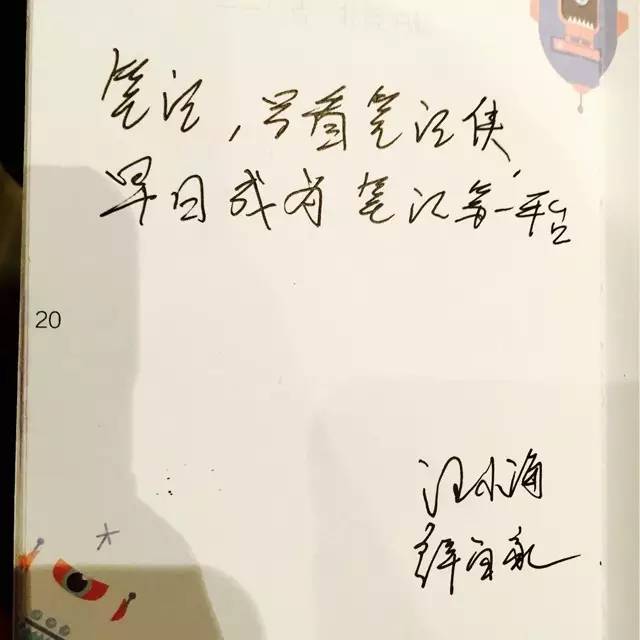 笔记，只看笔记侠
早日成为笔记第一平台
20
汪小海